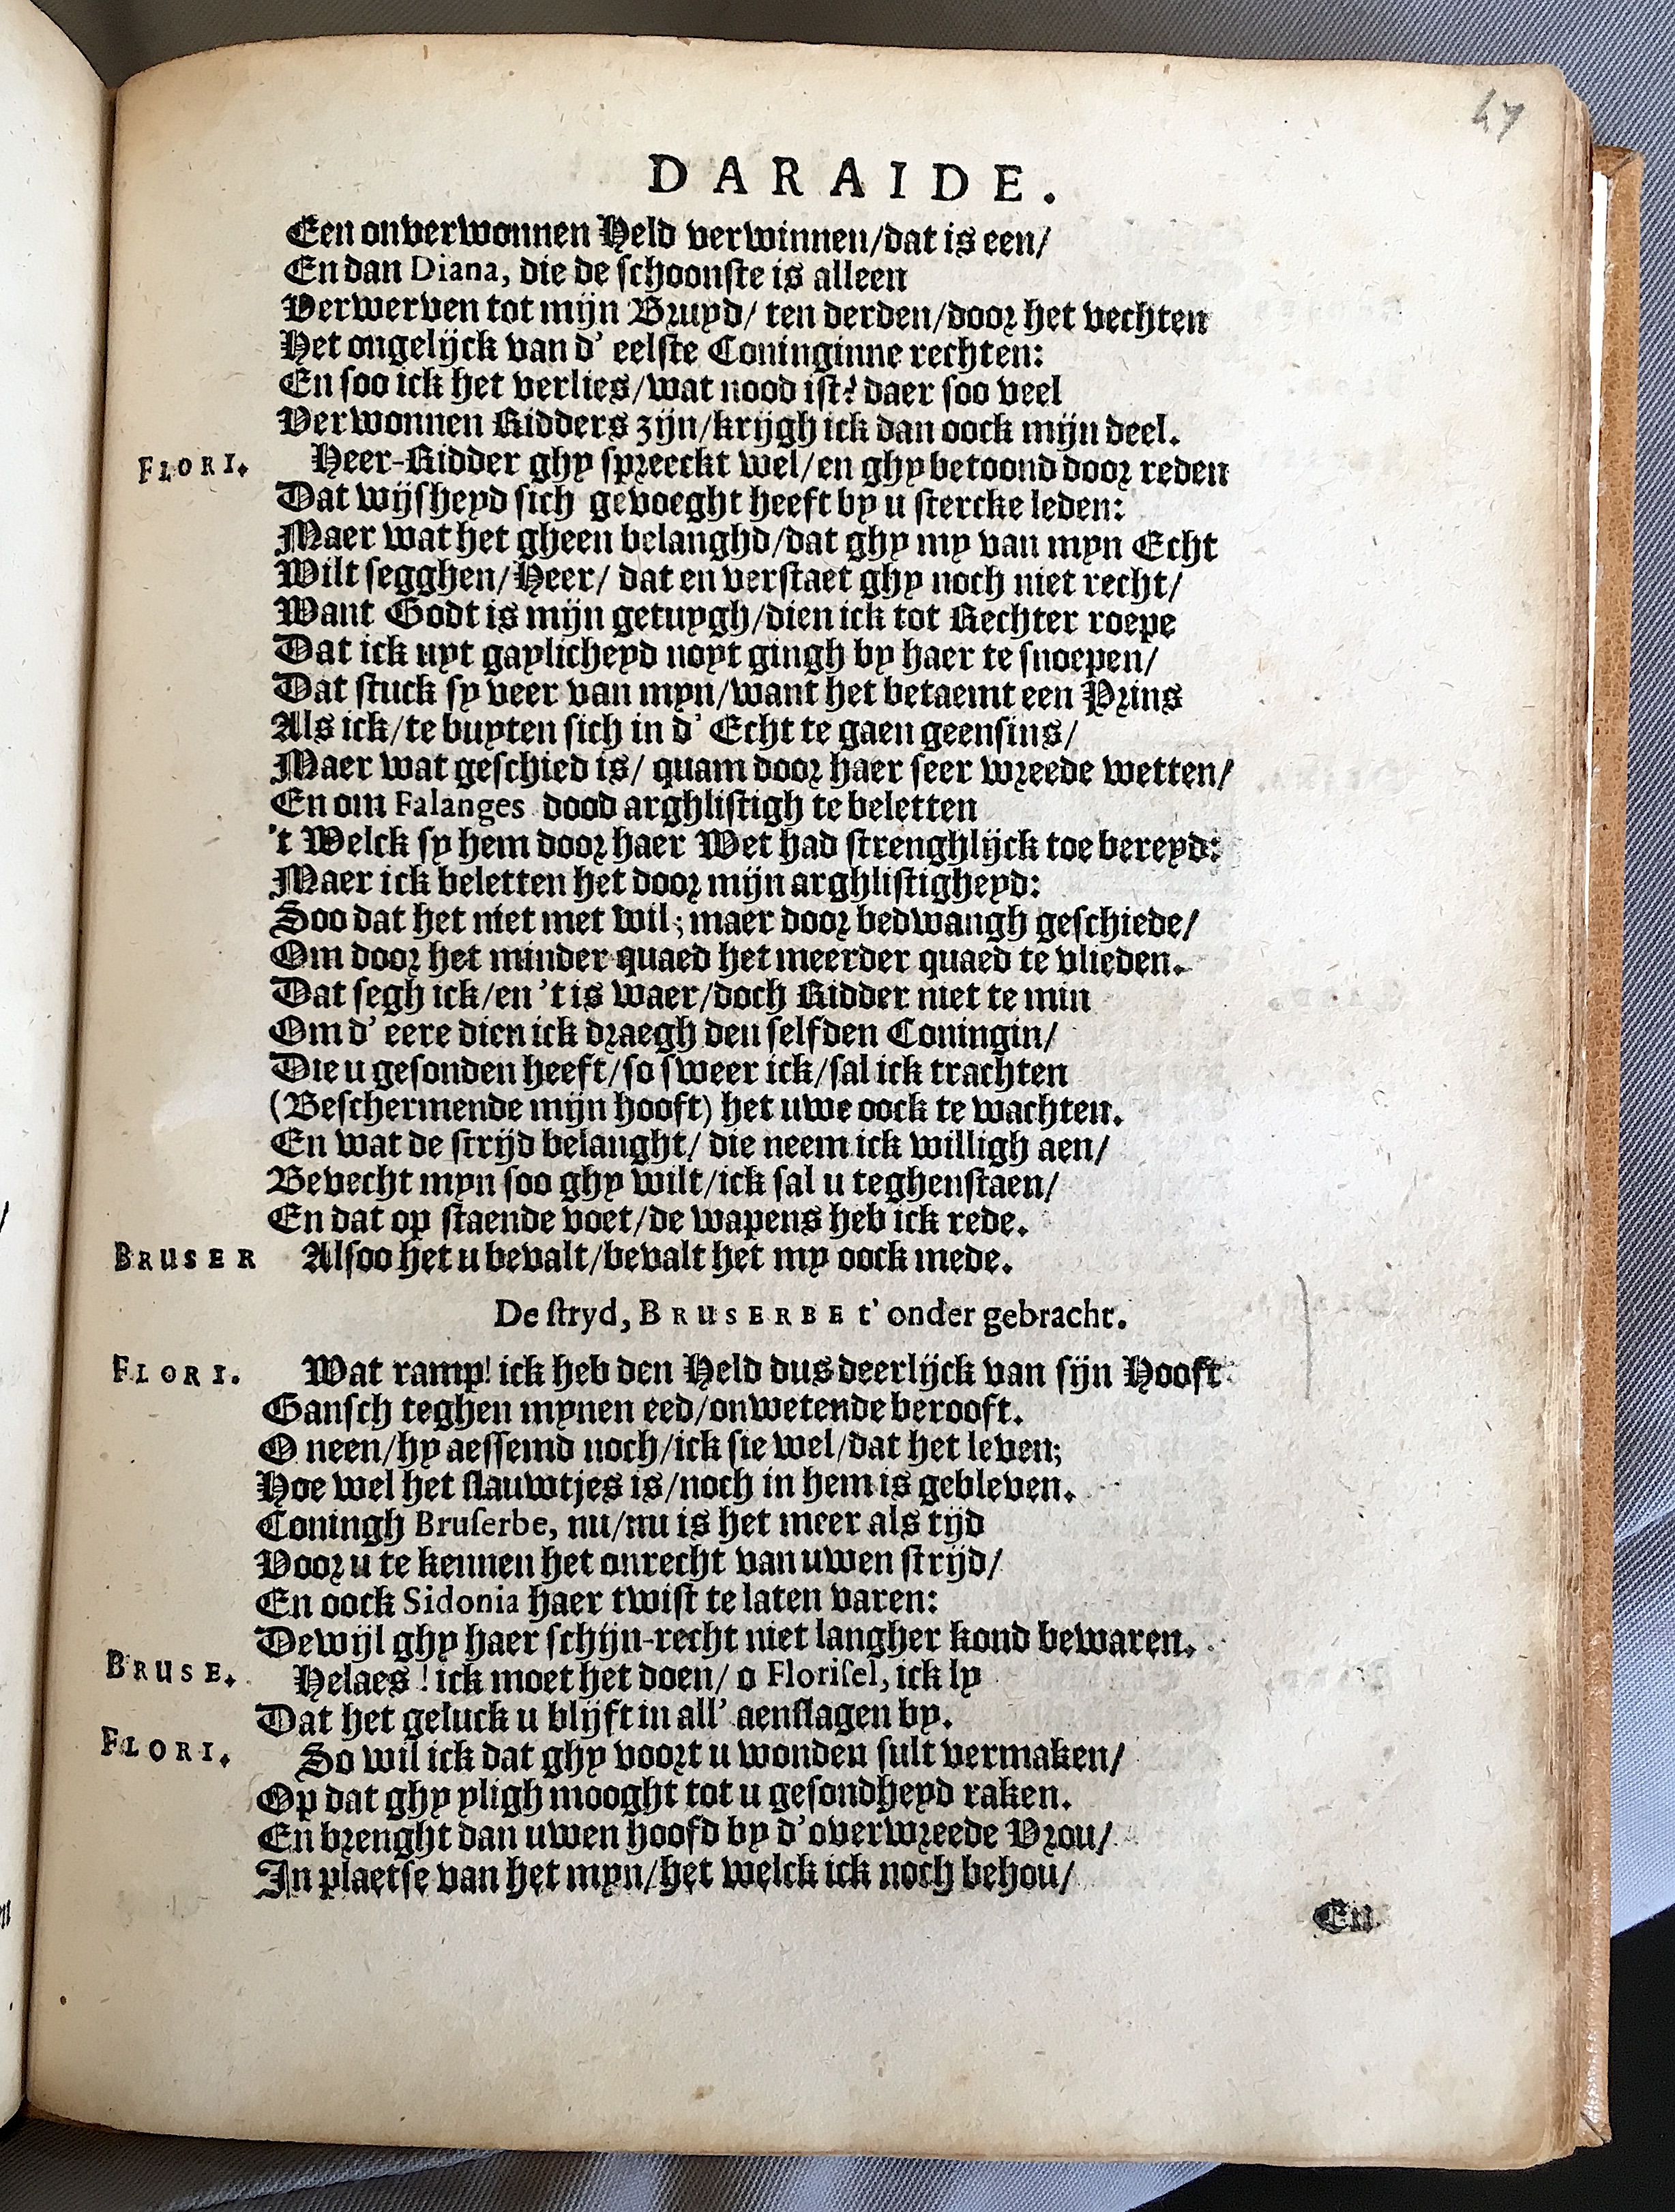 47
DARAIDE.
Een onverwonnen Held verwinnen/dat is een/
En dan Diana, die de schoonste is alleen
Verwerven tot mijn Bruyd/ ten derden/door het vechten
Het ongelijck van d' eelste Coninginne rechten:
En soo ick het verlies/wat nood ist? daer soo veel
Verwonnen Ridders zijn/krijgh ick dan oock mijn deel.
FLORI. Heer-Ridder ghy spreeckt wel/en ghy betoond door reden
Dat wijsheyd sich gevoeght heeft by u stercke leden:
Maer wat het gheen belanghd/dat ghy my van myn Echt
Wilt segghen/Heer/ dat en verstaet ghy noch niet recht/
Want Godt is mijn getuygh/dien ick tot Rechter roepe
Dat ick uyt gaylicheyd noyt gingh by haer te snoepen/
Dat stuck sy veer van myn/want het betaemt een Prins
Als ick/te buyten sich in d' Echt te gaen geensins/
Maer wat geschied is/ quam door haer seer wreede wetten/
En om Falanges dood arghlistigh te beletten
't Welck sy hem door haer Wet had strenghlijck toe bereyd:
Maer ick beletten het door mijn arghlistigheyd:
Soo dat het niet met wil; maer door bedwangh geschiede/
Om door het minder quaed het meerder quaed te vlieden.
Dat segh ick/en 't is waer/doch Ridder niet te min
Om d' eere dien ick draegh den selfden Coningin/
Die u gesonden heeft/so sweer ick/sal ick trachten
(Beschermende mijn hooft) het uwe oock te wachten.
En wat de strijd belanght/ die neem ick willigh aen/
Bevecht myn soo ghy wilt/ick sal u teghenstaen/
En dat op staende voet/de wapens heb ick rede.
BRUSER Alsoo het u bevalt/bevalt het my oock mede.
De stryd, BRUSERBE t' onder gebracht.
FLORI. Wat ramp! ick heb den Held dus deerlijck van sijn Hooft
Gansch teghen mynen eed/onwetende berooft.
O neen/hy aessemd noch/ick sie wel/dat het leven;
Hoe wel het flauwtjes is/noch in hem is gebleven.
Coningh Bruserbe, nu/nu is het meer als tijd
Voor u te kennen het onrecht van uwen strijd/
En oock Sidonia haer twist te laten varen:
Dewijl ghy haer schijn-recht niet langher kond bewaren.
BRUSE. Helaes! ick moet het doen/ o Florisel, ick ly
Dat het geluck u blijft in all' aenslagen by.
FLORI. So wil ick dat ghy voort u wonden sult vermaken/
Op dat ghy yligh mooght tot u gesondheyd raken.
En brenght dan uwen hoofd by d'overwreede Vrou/
In plaetse van het myn/het welck ick noch behou/
En